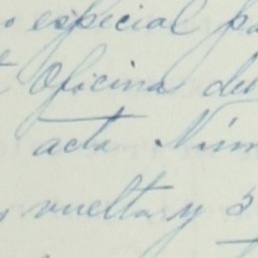 o especial pa
Oficina del
acta Núm
vuelta y 3